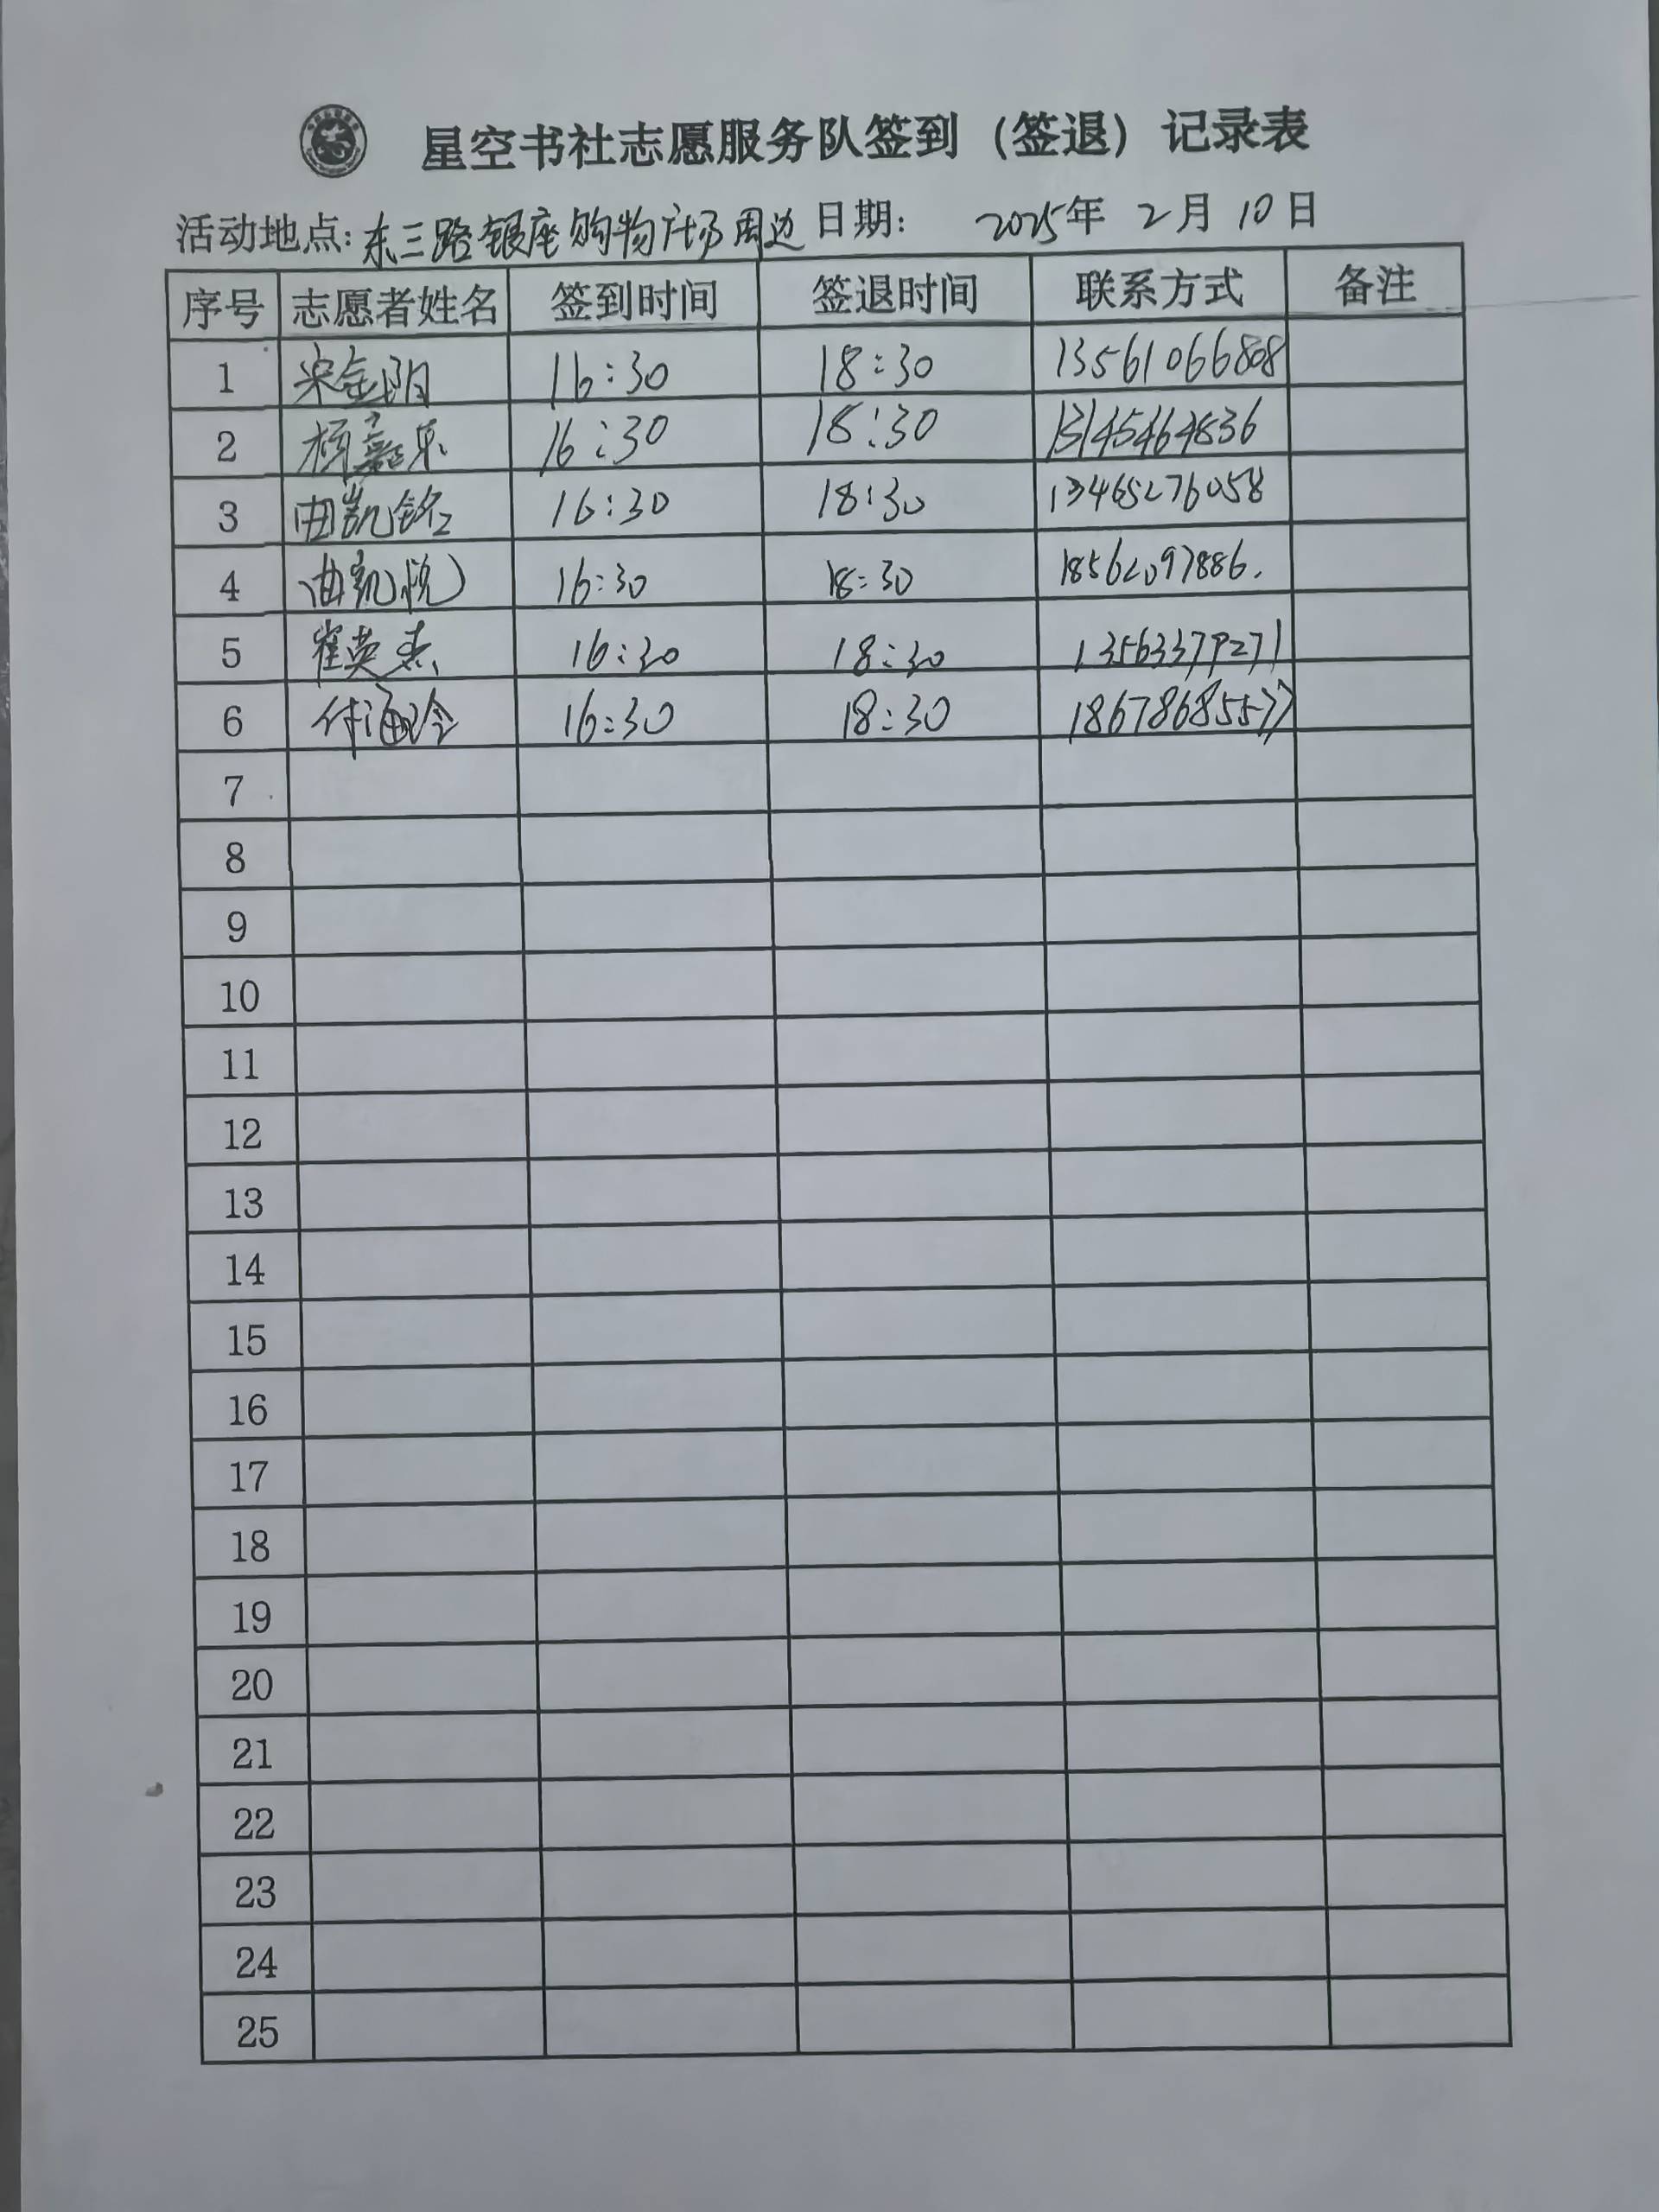 星空书社志愿服务队签到（签退）记录表
活动地点：东三路银座购物广场周边 日期： 2025年 2月 10日
序号 志愿者姓名 签到时间 签退时间 联系方式 备注
1 宋金明 16:30 18:30 13561066808
2 杨嘉乐 16:30 18:30 13145464836
3 曲凯铭 16:30 18:30 13465276058
4 曲凯悦 16:30 18:30 18562097886.
5 崔英杰 16:30 18:30 13563379271
6 付海玲 16:30 18:30 18678685577
7
8
9
10
11
12
13
14
15
16
17
18
19
20
21
22
23
24
25